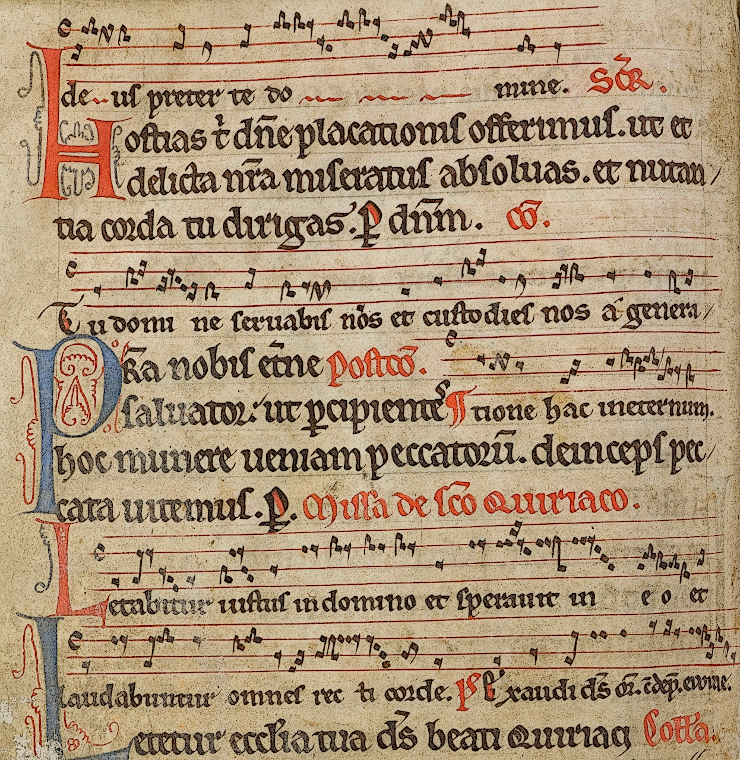 de us preter te do mine. Scr̃.
Hostias t̃ dñe placationis offerimus. ut et
delicta nr̃a miseratus absoluas. et nutan/
tia corda tu dirigas. P dñm. cõ.
Tu domi ne seruabis nos et custodies nos a genera/
Pr̃a nobis et̃ne Postcõ.
saluator. ut pcipientes ¶ tione hac ineternum.
hoc munere ueniam peccatorũ. deinceps pec/
cata uitemus. P. Missa de sc̃o Quiriaco.
Letabitur iustus in domino et sperauit in e o et
laudabuntur omnes rec ti corde. ps Exaudi d̃s
Letetur eccl̃ia tua d̃s beati Quiriaci Coll̃a.